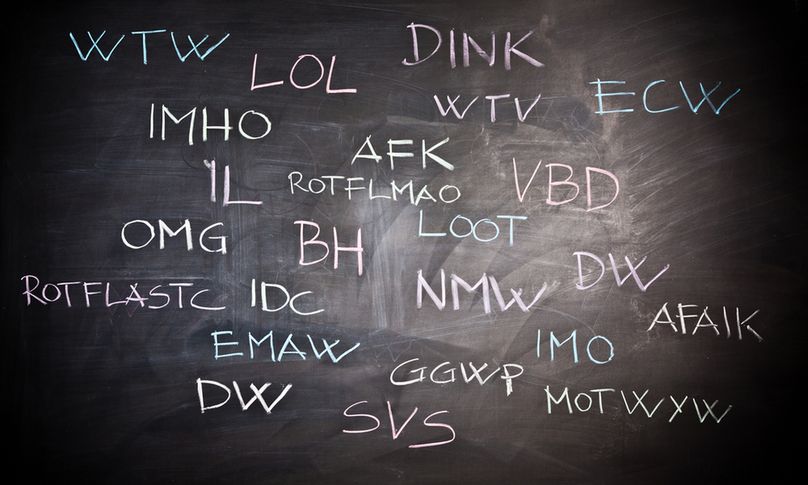 WTW
DINK
LOL
WTV
ECW
IMHO
AFK
IL
ROTFLMAO
VBD
OMG
BH
LOOT
DW
ROTFLASTC
IDC
NMW
AFAIK
EMAW
IMO
GGWP
DW
MOTWYW
SVS